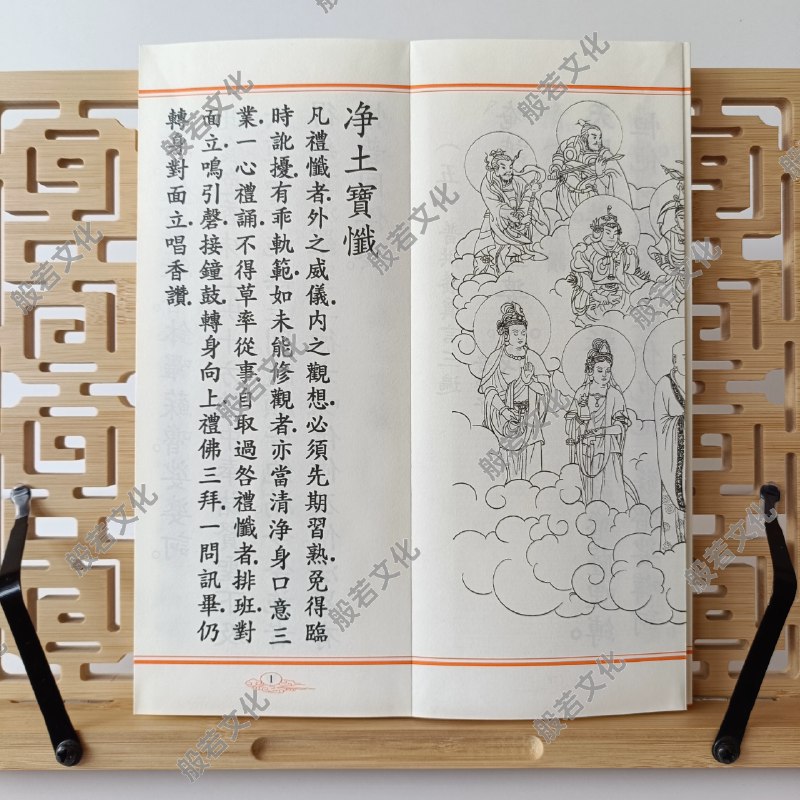 净土寶懺
凡禮懺者.外之威儀.内之觀想.必須先期習熟.免得臨
時訛擾.有乖軌範.如未能修觀者.亦當清淨身口意三
業.一心禮誦.不得草率從事.自取過咎.禮懺者.排班.對
面立.鳴引磬.接鐘鼓.轉身向上禮佛三拜.一問訊畢.仍
轉身對面立.唱香讚.
1
般若文化
般若文化
般若文化
般若文化
般若文化
般若文化
般若文化
般若文化
般若文化
般若文化
般若文化
般若文化
般若文化